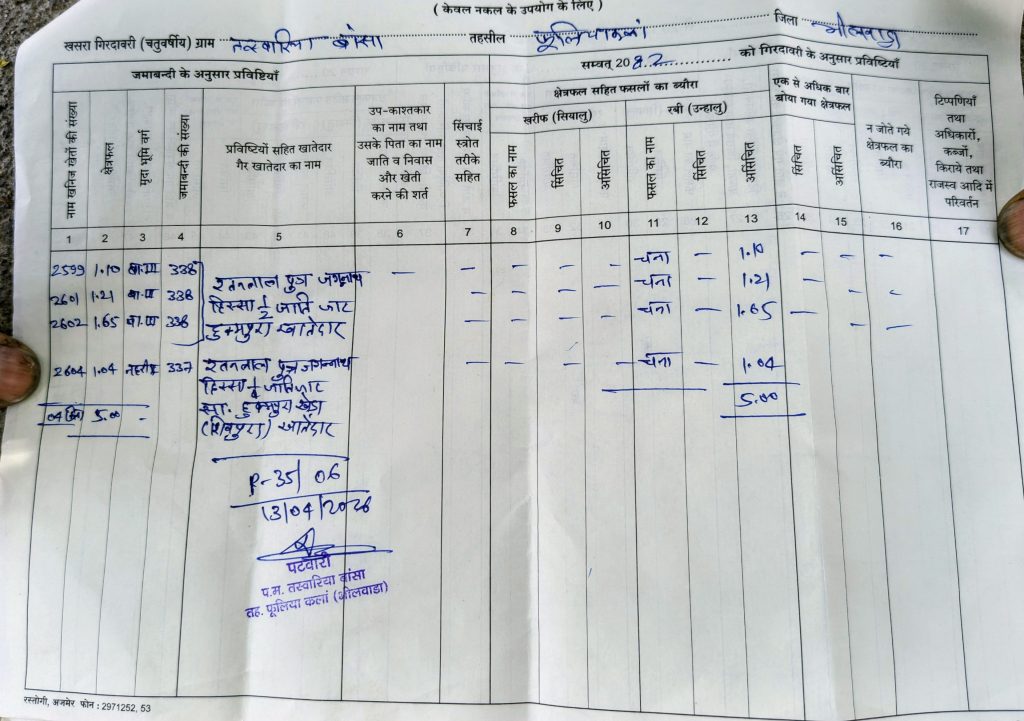 ( केवल नकल के उपयोग के लिए )
खसरा गिरदावरी (चतुवर्षीय) ग्राम तस्वारिया बांसा तहसील फूलियाकलां जिला भीलवाड़ा
जमाबन्दी के अनुसार प्रविष्टियाँ सम्वत् 2082 को गिरदावरी के अनुसार प्रविष्टियाँ
क्षेत्रफल सहित फसलों का ब्यौरा
खरीफ (सियालु) रबी (उन्हालु)
नाम खनिज खेतों की संख्या
क्षेत्रफल
मृदा भूमि वर्ग
जमाबन्दी की संख्या
प्रविष्टियों सहित खातेदार
गैर खातेदार का नाम
उप-काश्तकार
का नाम तथा
उसके पिता का नाम
जाति व निवास
और खेती
करने की शर्त
सिंचाई
स्त्रोत
तरीके
सहित
फसल का नाम
सिंचित
असिंचित
फसल का नाम
सिंचित
असिंचित
एक से अधिक बार
बोया गया क्षेत्रफल
सिंचित
असिंचित
न जोते गये
क्षेत्रफल का
ब्यौरा
टिप्पणियाँ
तथा
अधिकारों,
कब्जों,
किराये तथा
राजस्व आदि में
परिवर्तन
1 2 3 4 5 6 7 8 9 10 11 12 13 14 15 16 17
2599 1.10 बा.III 338 रतनलाल पुत्र जगन्नाथ — — — — — चना — 1.10 — — —
2601 1.21 बा.III 338 हिस्सा 1/2 जाति जाट — — — — चना — 1.21 — — —
2602 1.65 बा.III 338 हुक्मपुरा खातेदार — — — — चना — 1.65 — — —
2604 1.04 337 रतनलाल पुत्र जगन्नाथ — — — — चना — 1.04
हिस्सा 1/4 जाति जाट
04 किता 5.00 - सा. हुक्मपुरा खेड़ा 5.00
(शिवपुरा) खातेदार
P-35/06
13/04/2026
पटवारी
प.म. तस्वारिया बांसा
तह. फूलिया कलां (भीलवाडा)
रस्तोगी, अजमेर फोन : 2971252, 53